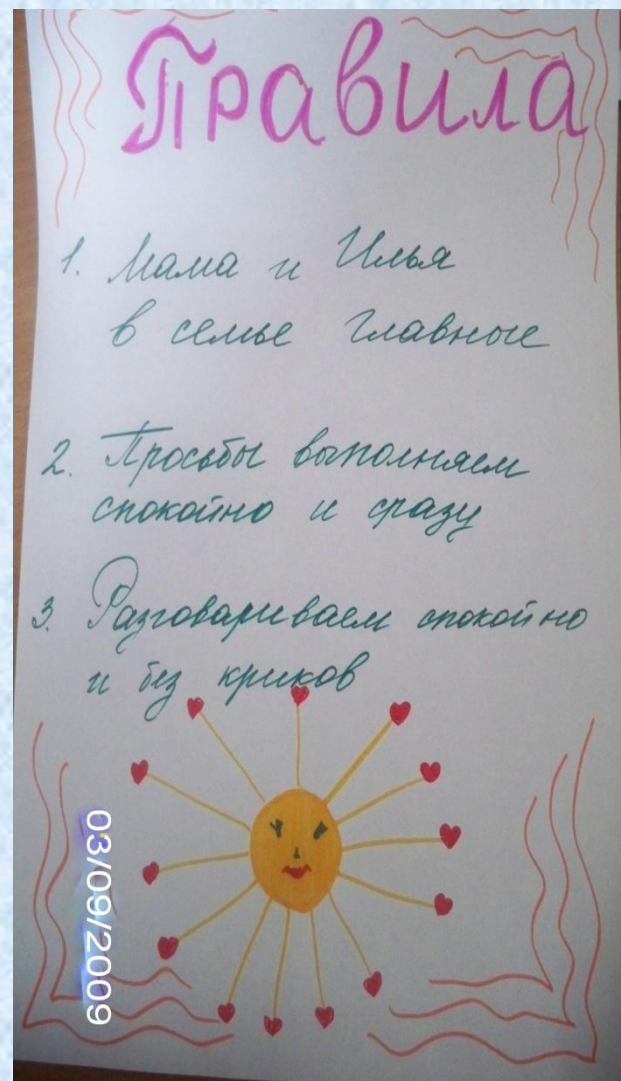 Правила
1. Мама и Илья
в семье главные
2. Просьбы выполняем
спокойно и сразу
3. Разговариваем спокойно
и без криков
03/09/2009